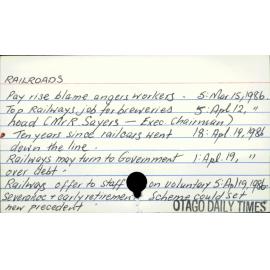 RAILROADS
Pay rise blame angers workers. 5: Mar 15, 1986.
Top Railways job for breweries 5: Apl 12, "
head (Mr R Sayers - Exec. Chairman)
Ten years since railcars went 18: Apl 19, 1986
down the line.
Railways may turn to Government 1: Apl 19, "
over debt.
Railway offer to staff on voluntary 5: Apl 19, 1986
severance + early retirement Scheme could set
new precedent
OTAGO DAILY TIMES